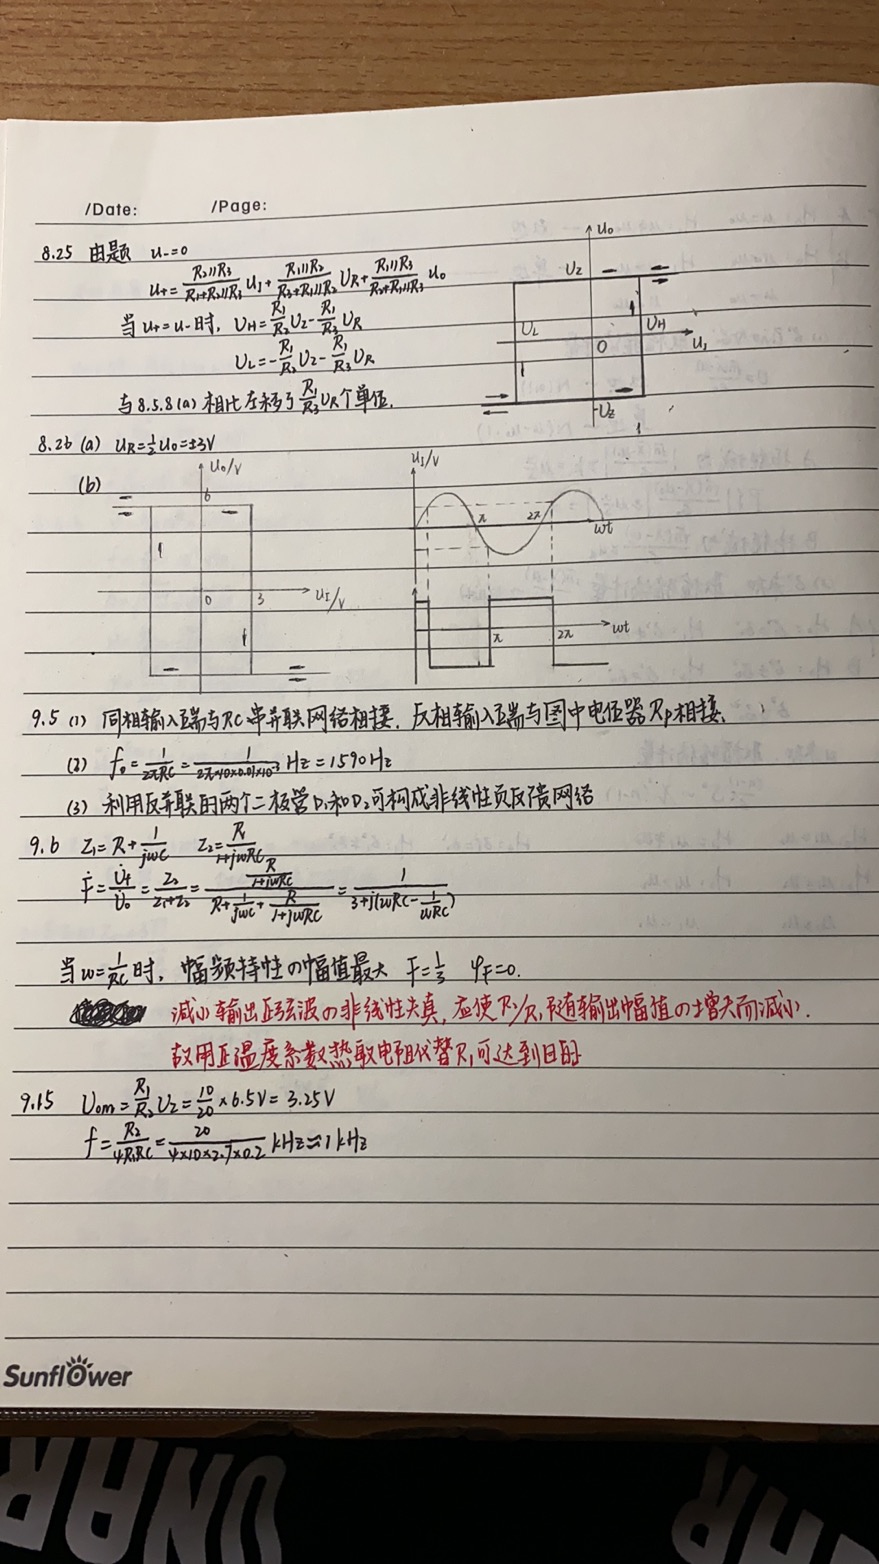 /Date: /Page:
8.25 由题 u₋=0
u₊=\frac{R₂//R₃}{R₁+R₂//R₃}u_I+\frac{R₁//R₂}{R₃+R₁//R₂}U_R+\frac{R₁//R₃}{R₂+R₁//R₃}u₀
当u₊=u₋时, U_H=\frac{R₁}{R₂}U_Z-\frac{R₁}{R₃}U_R
U_L=-\frac{R₁}{R₂}U_Z-\frac{R₁}{R₃}U_R
与8.5.8(a)相比左移了\frac{R₁}{R₃}U_R个单位.
u₀
U_Z
U_L
U_H
0
u_I
-U_Z
8.26 (a) U_R=½u₀=±3V
(b)
u₀/V
6
0
3
u_I/V
u_I/V
π
2π
wt
π
2π
wt
9.5 (1) 同相输入端与RC串并联网络相接. 反相输入端与图中电位器Rp相接.
(2) f₀=\frac{1}{2πRC}=\frac{1}{2π×10×0.01×10⁻³}Hz=1590Hz
(3) 利用反并联的两个二极管D₁和D₂可构成非线性负反馈网络
9.6 Z₁=R+\frac{1}{jwC} Z₂=\frac{R}{1+jwRC}
Ḟ=\frac{U̇_f}{U̇₀}=\frac{Z₂}{Z₁+Z₂}=\frac{\frac{R}{1+jwRC}}{R+\frac{1}{jwC}+\frac{R}{1+jwRC}}=\frac{1}{3+j(wRC-\frac{1}{wRC})}
当w=\frac{1}{RC}时, 幅频特性の幅值最大 F=\frac{1}{3} φ_F=0.
减小输出正弦波の非线性失真, 应使R₂/R₁随输出幅值の增大而减小.
故用正温度系数热敏电阻代替R₁可达到目的
9.15 Uom=\frac{R₁}{R₂}U_Z=\frac{10}{20}×6.5V=3.25V
f=\frac{R₂}{4R₁RC}=\frac{20}{4×10×2.7×0.2}kHz≈1kHz
Sunflower